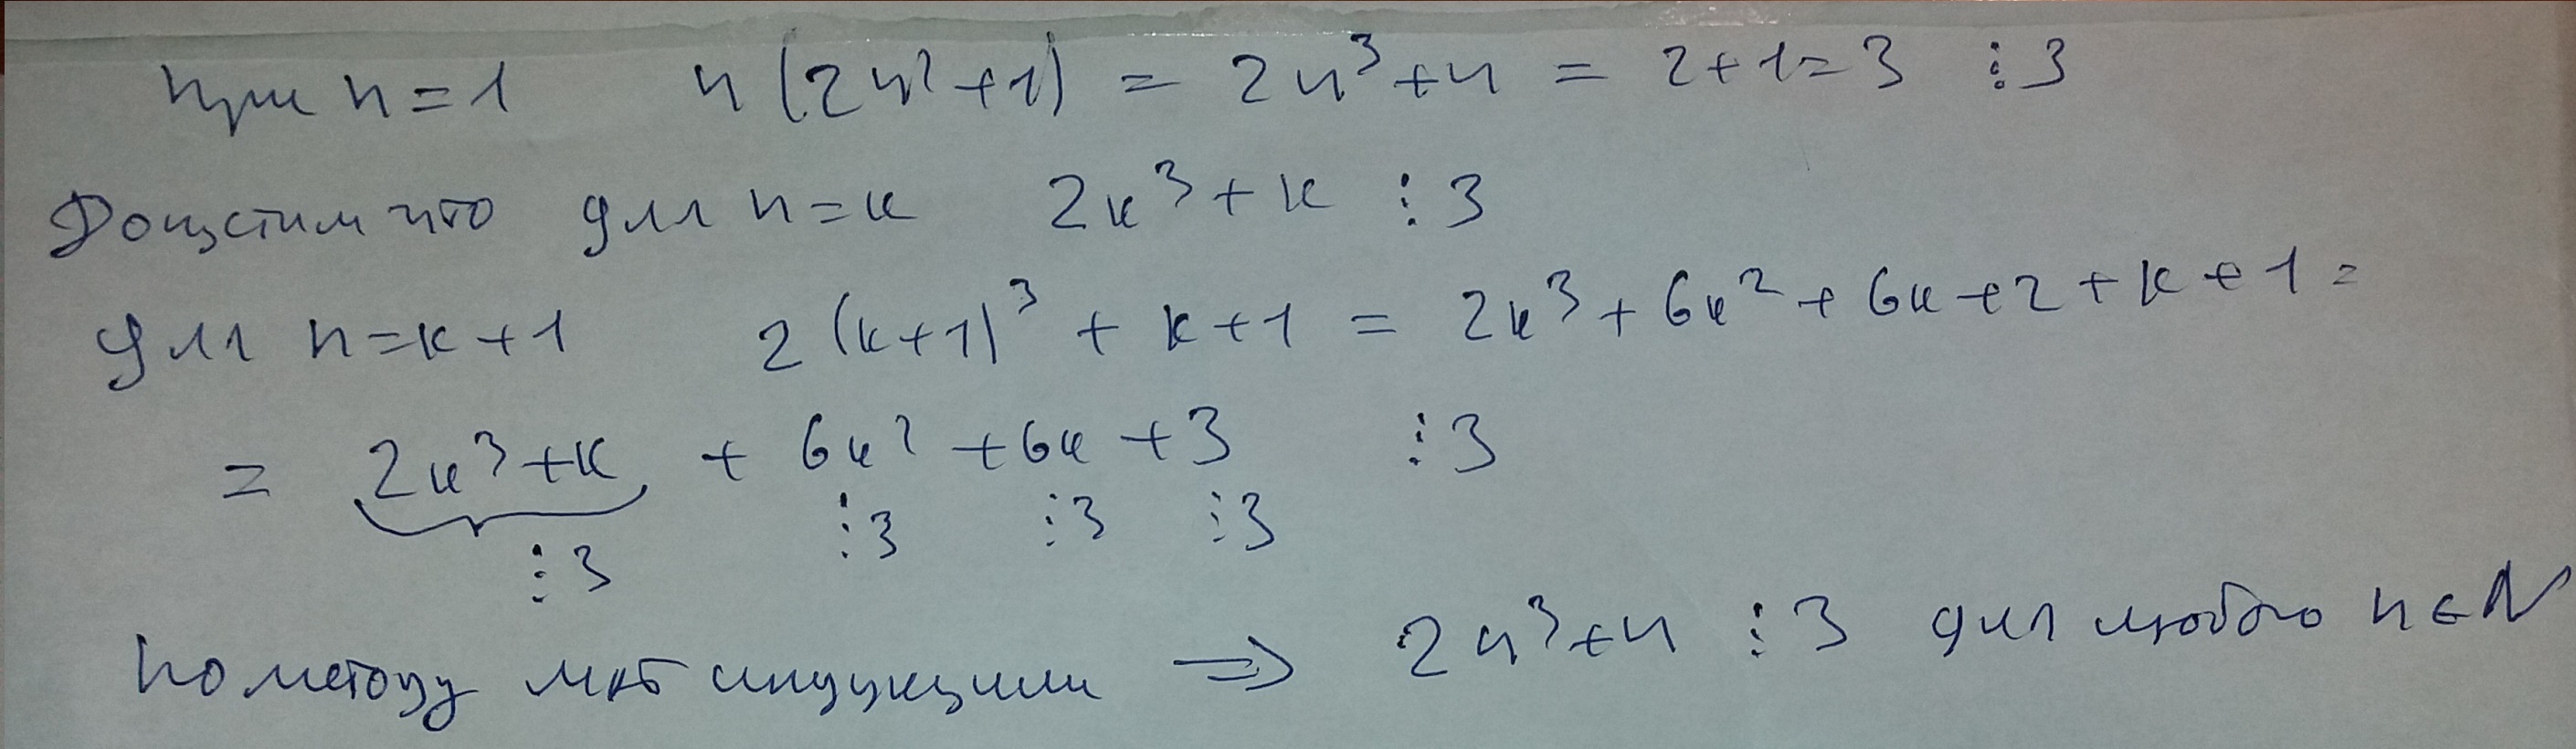 при n=1 n(2n²+1) = 2n³+n = 2+1=3 ⋮3
Допустим что для n=k 2k³+k ⋮3
для n=k+1 2(k+1)³+k+1 = 2k³+6k²+6k+2+k+1=
= 2k³+k + 6k²+6k+3 ⋮3
⋮3 ⋮3 ⋮3 ⋮3
по методу мат индукции ⇒ 2n³+n ⋮3 для любого n∈N